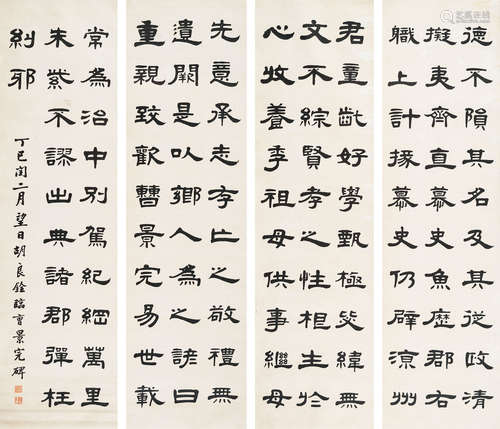 德不隕其名及其從政清
擬夷齊直慕史魚歷郡右
軄上計掾慕史仍辟涼州
君童齔好學甄極毖緯無
文不綜賢孝之性相生於
心收養季祖母供事繼母
先意承志存亡之敬禮無
遺闕是以鄉人為之諺曰
重親致歡曹景完易世載
常為治中別駕紀綱萬里
朱紫不謬出典諸郡彈枉
糾邪
丁巳閏二月望日胡良銓臨曹景完碑